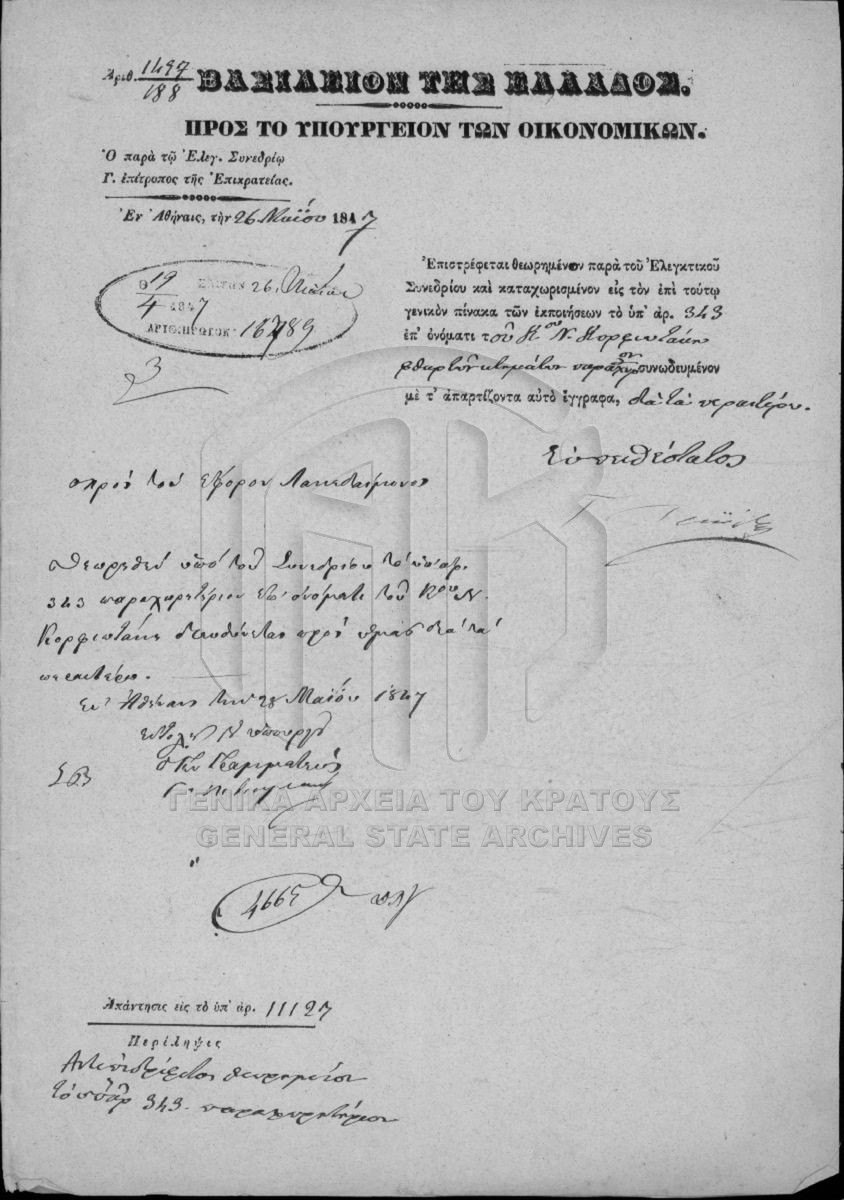 Ἀριθ. 1497
188
ΒΑΣΙΛΕΙΟΝ ΤΗΣ ΕΛΛΑΔΟΣ.
ΠΡΟΣ ΤΟ ΥΠΟΥΡΓΕΙΟΝ ΤΩΝ ΟΙΚΟΝΟΜΙΚΩΝ.
Ὁ παρὰ τῷ Ἐλεγ. Συνεδρίῳ
Γ. ἐπίτροπος τῆς Ἐπικρατείας.
Ἐν Ἀθήναις, τὴν 26 Μαΐου 1847
19 26 Μαΐου
4 1847
ΑΡΙΘ. ΠΡΩΤΟΚ. 16789
Ἐπιστρέφεται θεωρημένον παρὰ τοῦ Ἐλεγκτικοῦ
Συνεδρίου καὶ καταχωρισμένον εἰς τὸν ἐπὶ τούτῳ
γενικὸν πίνακα τῶν ἐκποιήσεων τὸ ὑπ' ἀρ. 343
ἐπ' ὀνόματι τοῦ Κου Ν. Κορφιωτάκη
φθαρτῶν κτημάτων συνωδευμένον
μὲ τ' ἀπαρτίζοντα αὐτὸ ἔγγραφα, διὰ τὰ περαιτέρω.
Εὐπειθέστατος
Πρὸς τὸν Ἔφορον Λακεδαίμονος
Θεωρηθὲν ὑπὸ τοῦ Συνεδρίου τὸ ὑπ' ἀρ.
343 παραχωρητήριον ἐπ' ὀνόματι τοῦ Κου Ν.
Κορφιωτάκη διευθύνεται πρὸς ὑμᾶς διὰ τὰ
περαιτέρω.
Ἐν Ἀθήναις τὴν 28 Μαΐου 1847
ἐντολῇ Ν ὑπουργοῦ
ὁ Γραμματεὺς
ΓΕΝΙΚΑ ΑΡΧΕΙΑ ΤΟΥ ΚΡΑΤΟΥΣ
GENERAL STATE ARCHIVES
4665
Ἀπάντησις εἰς τὸ ὑπ' ἀρ. 11127
Περίληψις
Ἀντεπιστρέφεται θεωρημένον
τὸ ὑπ' ἀρ 343 παραχωρητήριον